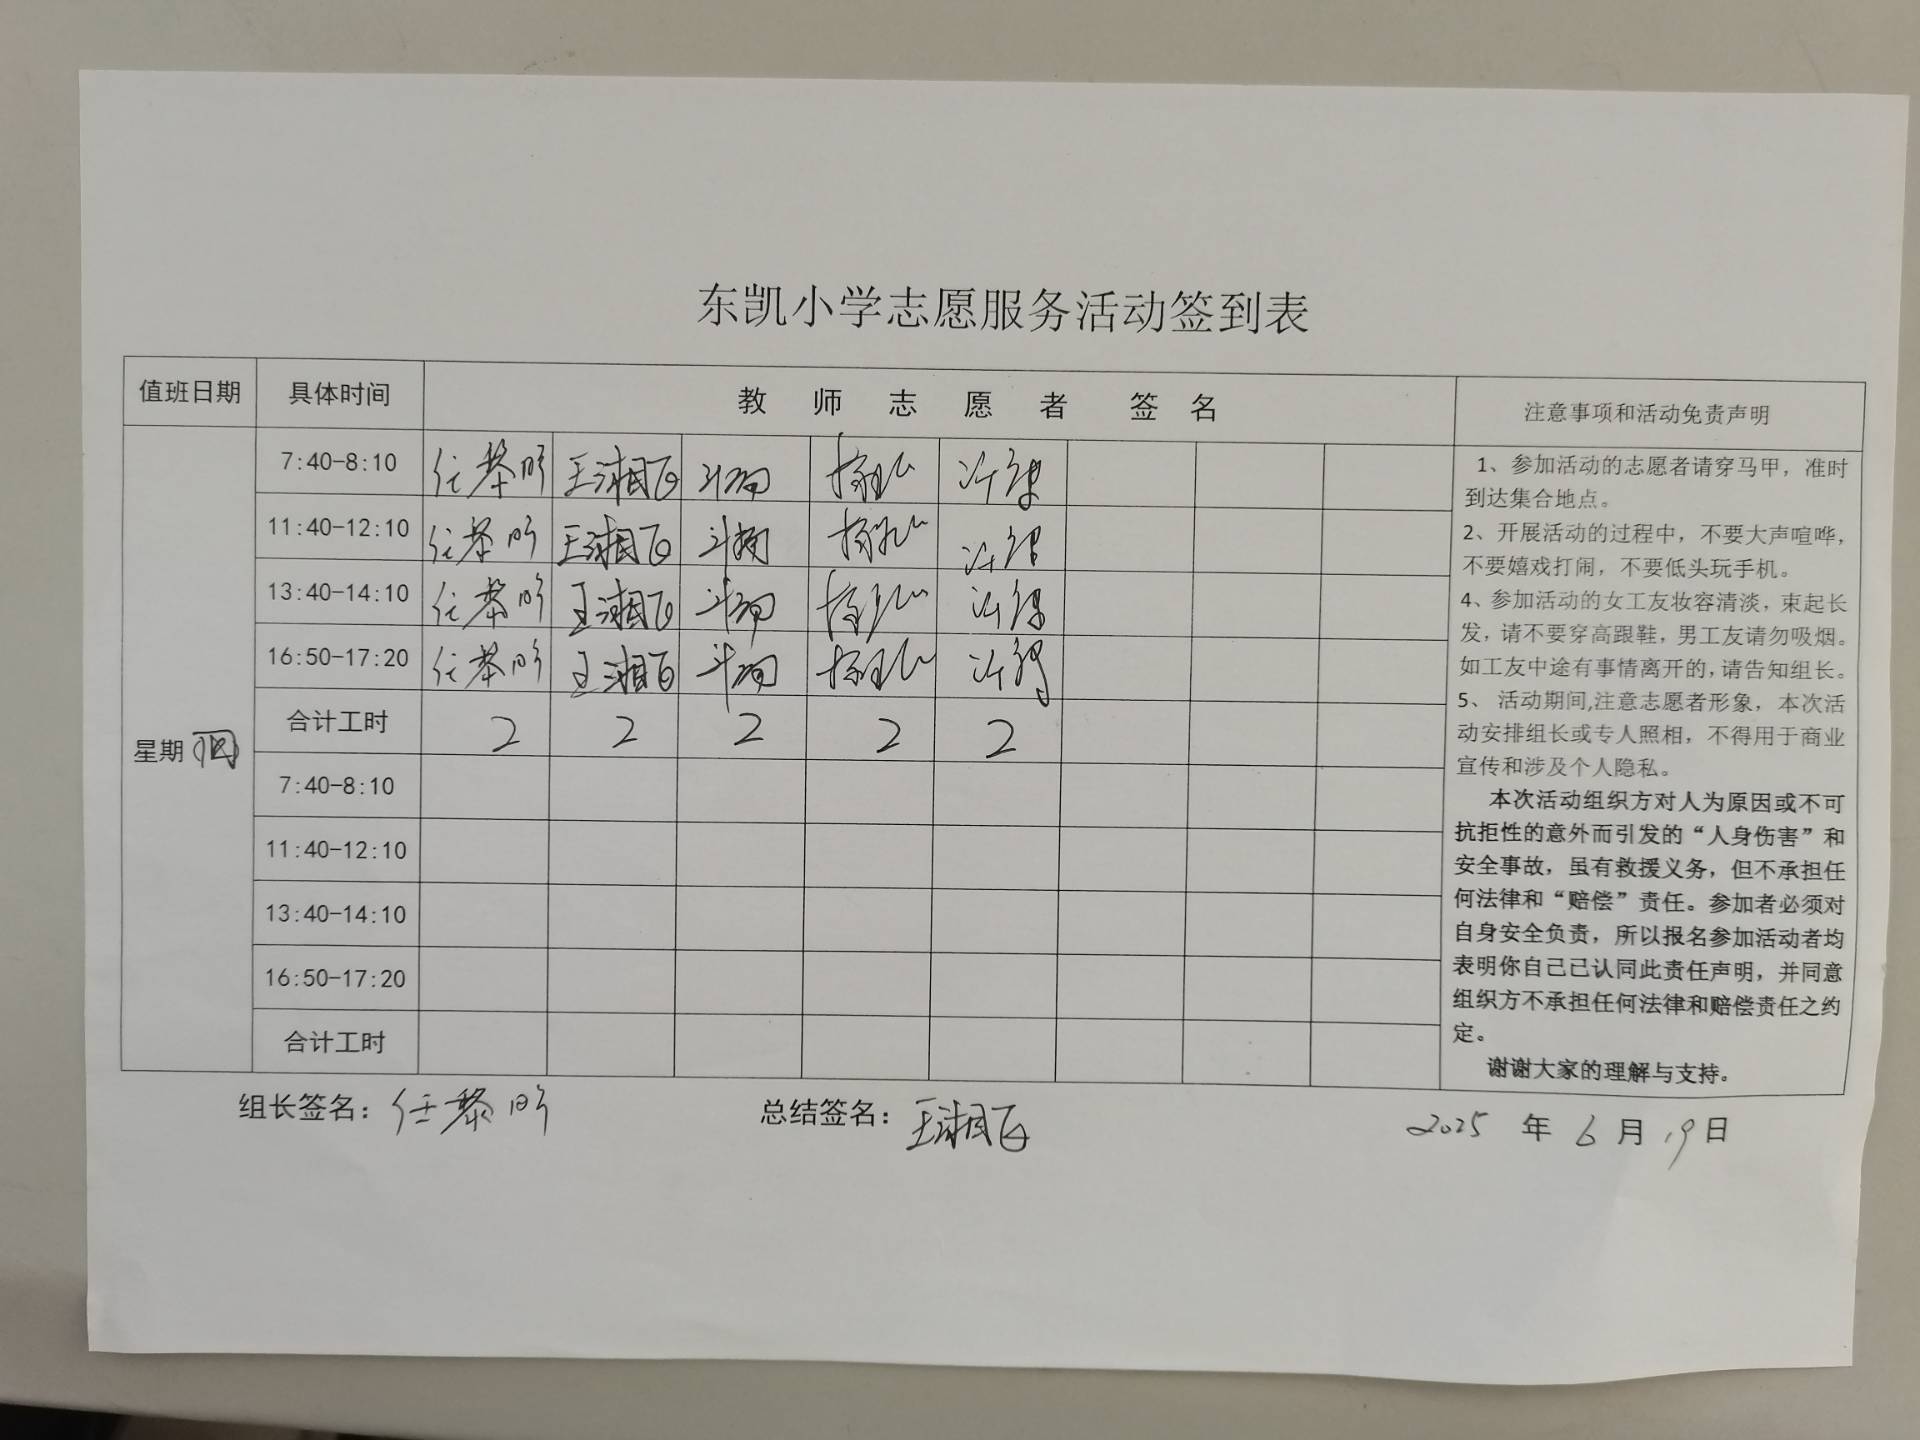 东凯小学志愿服务活动签到表
值班日期 具体时间 教师志愿者 签名 注意事项和活动免责声明
7:40-8:10 任黎昕 王湘飞
11:40-12:10 任黎昕 王湘飞
13:40-14:10 任黎昕 王湘飞
16:50-17:20 任黎昕 王湘飞
合计工时 2 2 2 2 2
星期(四)
7:40-8:10
11:40-12:10
13:40-14:10
16:50-17:20
合计工时
1、参加活动的志愿者请穿马甲，准时
到达集合地点。
2、开展活动的过程中，不要大声喧哗，
不要嬉戏打闹，不要低头玩手机。
4、参加活动的女工友妆容清淡，束起长
发，请不要穿高跟鞋，男工友请勿吸烟。
如工友中途有事情离开的，请告知组长。
5、 活动期间,注意志愿者形象，本次活
动安排组长或专人照相，不得用于商业
宣传和涉及个人隐私。
本次活动组织方对人为原因或不可
抗拒性的意外而引发的“人身伤害”和
安全事故，虽有救援义务，但不承担任
何法律和“赔偿”责任。参加者必须对
自身安全负责，所以报名参加活动者均
表明你自己已认同此责任声明，并同意
组织方不承担任何法律和赔偿责任之约
定。
谢谢大家的理解与支持。
组长签名：任黎昕 总结签名：王湘飞 2025 年 6 月 19 日